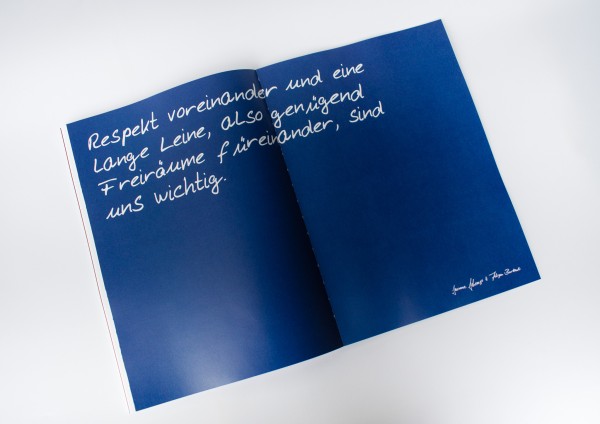 Respekt voreinander und eine
Lange Leine, also genügend
Freiräume füreinander, sind
uns wichtig.
&